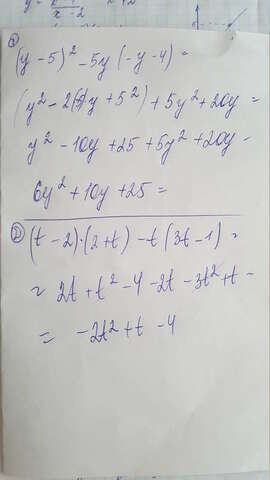 ①
(y - 5)² - 5y (-y - 4) =
(y² - 2·5y + 5²) + 5y² + 20y =
y² - 10y + 25 + 5y² + 20y -
6y² + 10y + 25 =
②
(t - 2)·(2 + t) - t (3t - 1) =
= 2t + t² - 4 - 2t - 3t² + t -
= -2t² + t - 4